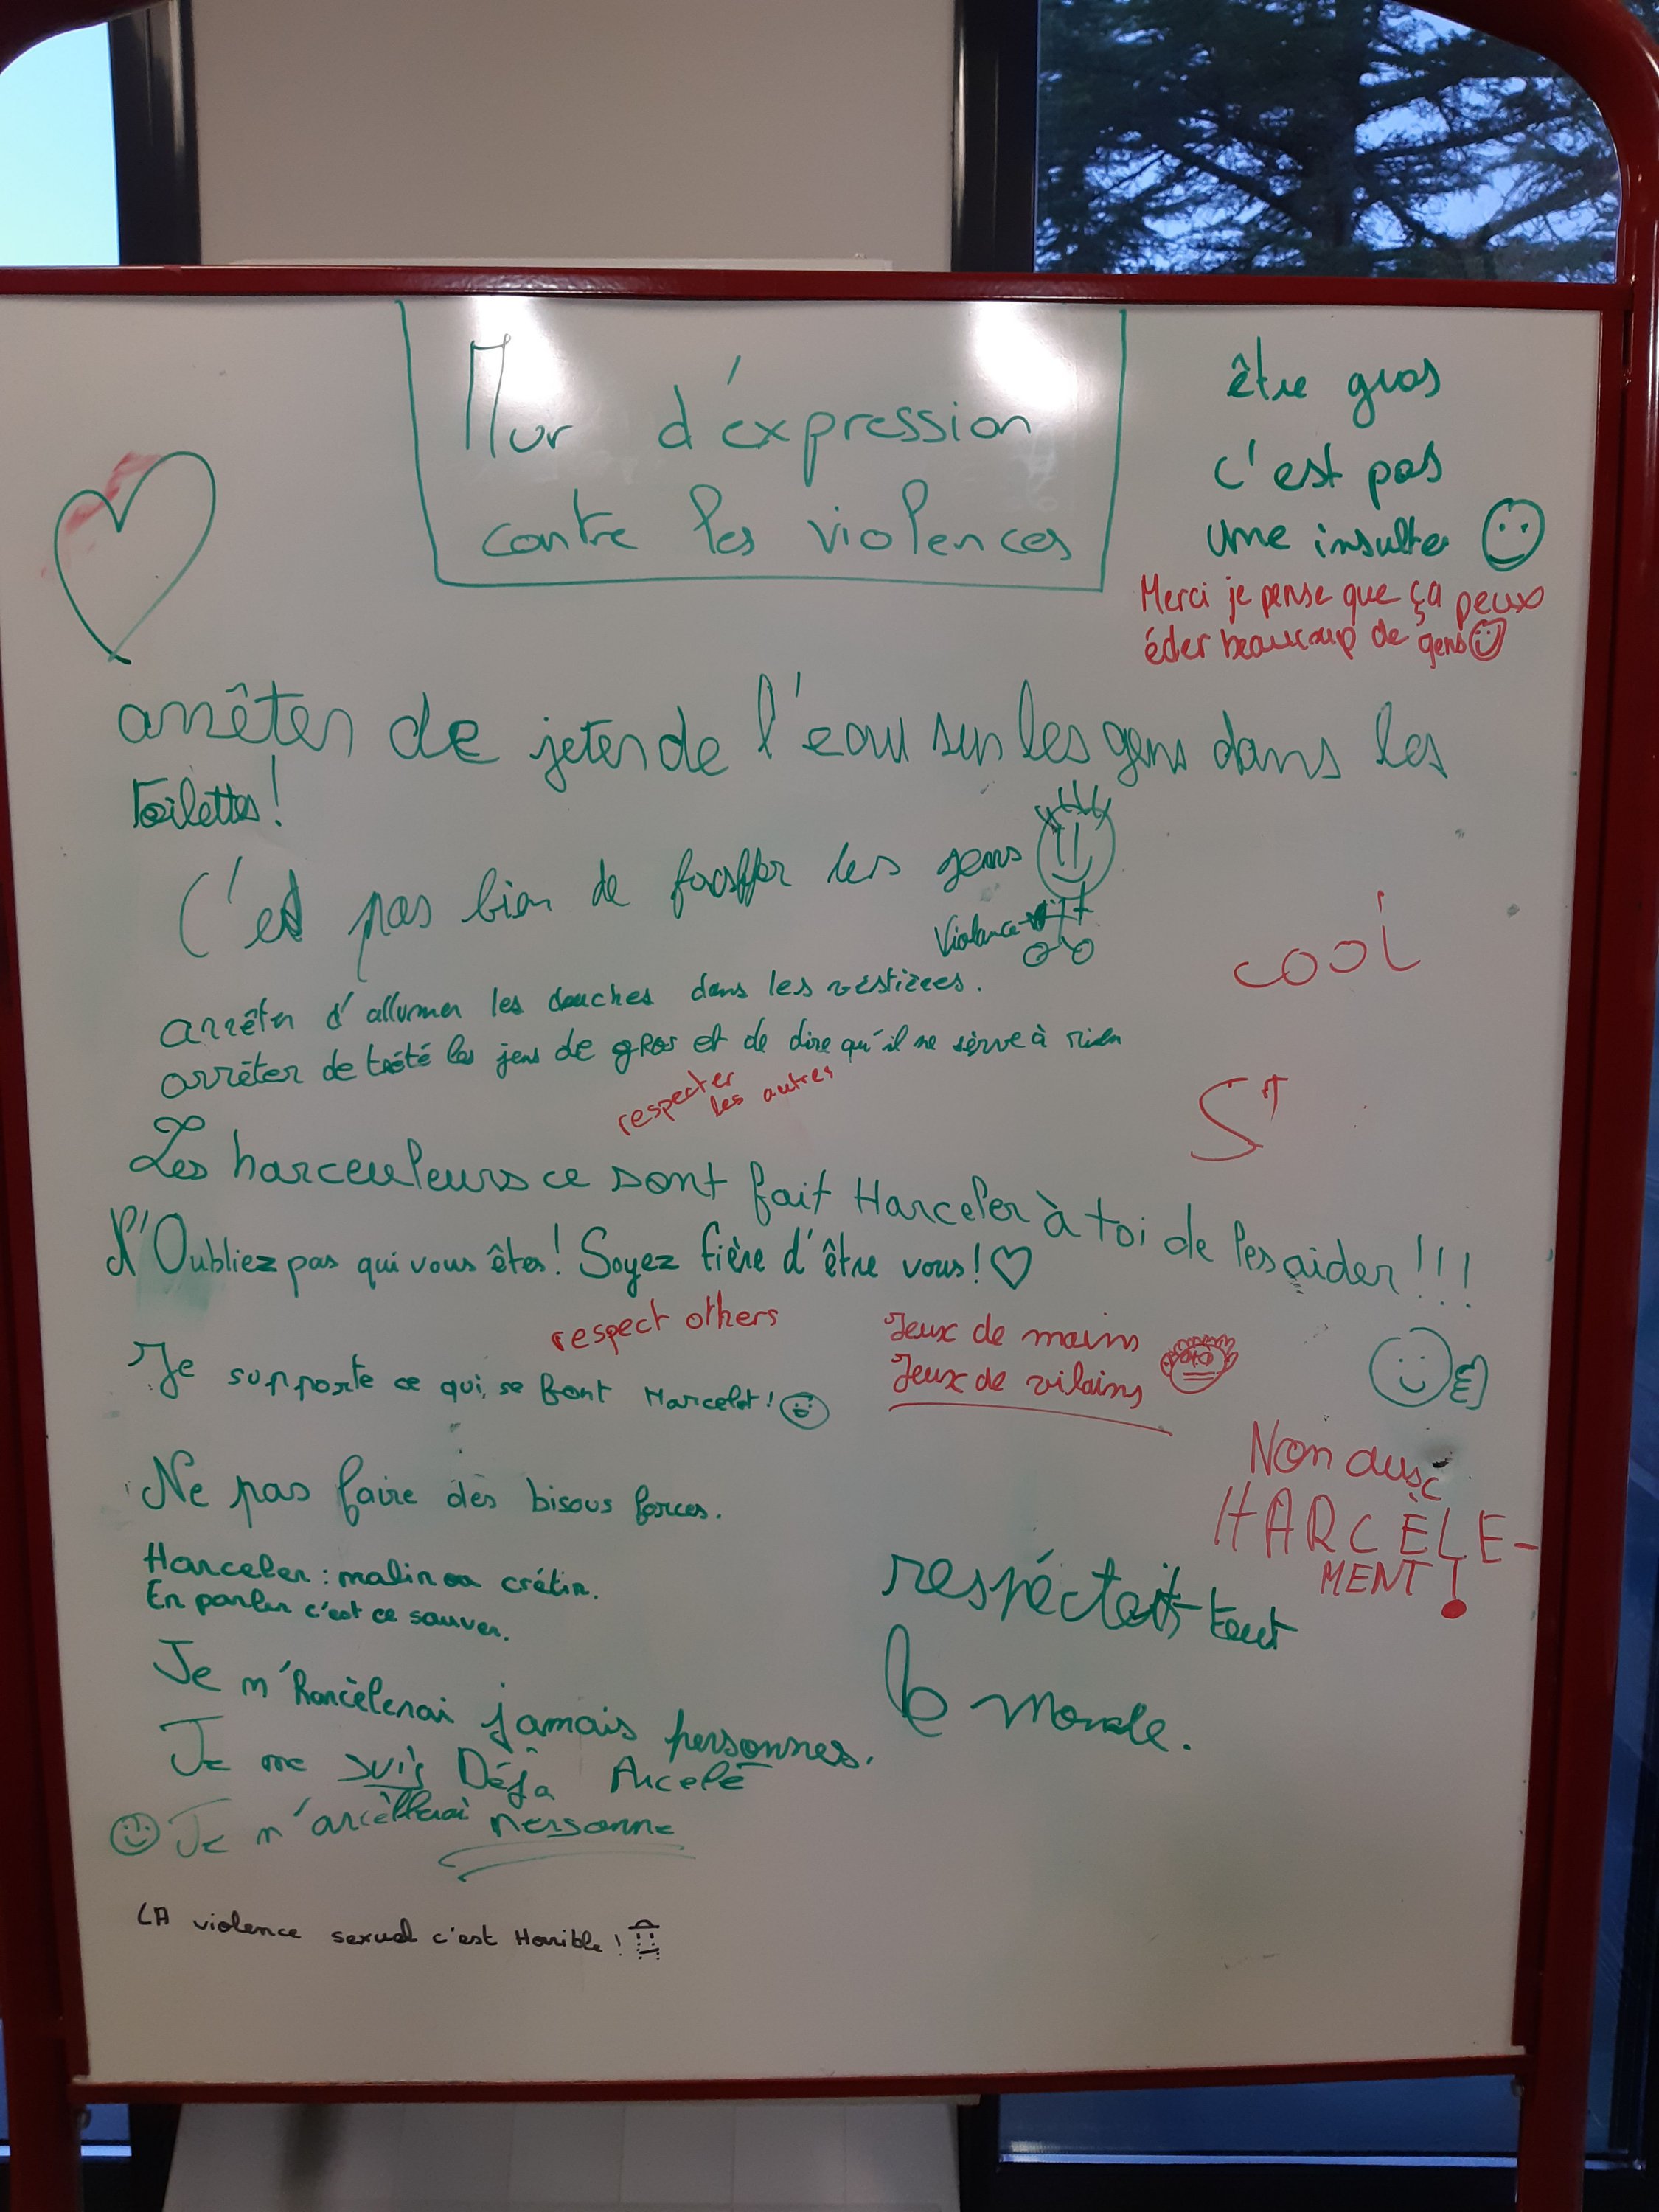 Mur d'éxpression
contre les violences
être gros
c'est pas
une insulte
Merci je pense que ça peux
éder beaucoup de gens
arrêter de jeter de l'eau sur les gens dans les
toilettes!
C'est pas bien de les gens
Violance
cool
arrêter d'allumer les douches dans les vestières.
arrêter de trété les jens de gros et de dire qu'il ne sèrve à rien
respecter
les autres
Les harceuleurs ce sont fait Harceler à toi de les aider!!!
N'Oubliez pas qui vous êtes! Soyez fière d'être vous!
respect others
Jeux de mains
Jeux de vilains
Je supporte ce qui se font Harceler!
Non aus
HARCÈLE-
MENT!
Ne pas faire des bisous forces.
Harceler: malin ou crétin.
En parler c'est ce sauver.
tout
le monde.
Je m'harcèlerai jamais personnes.
Je me suis Déja Arcelé
Je m'arcèllerai personne
LA violence sexual c'est Horrible!